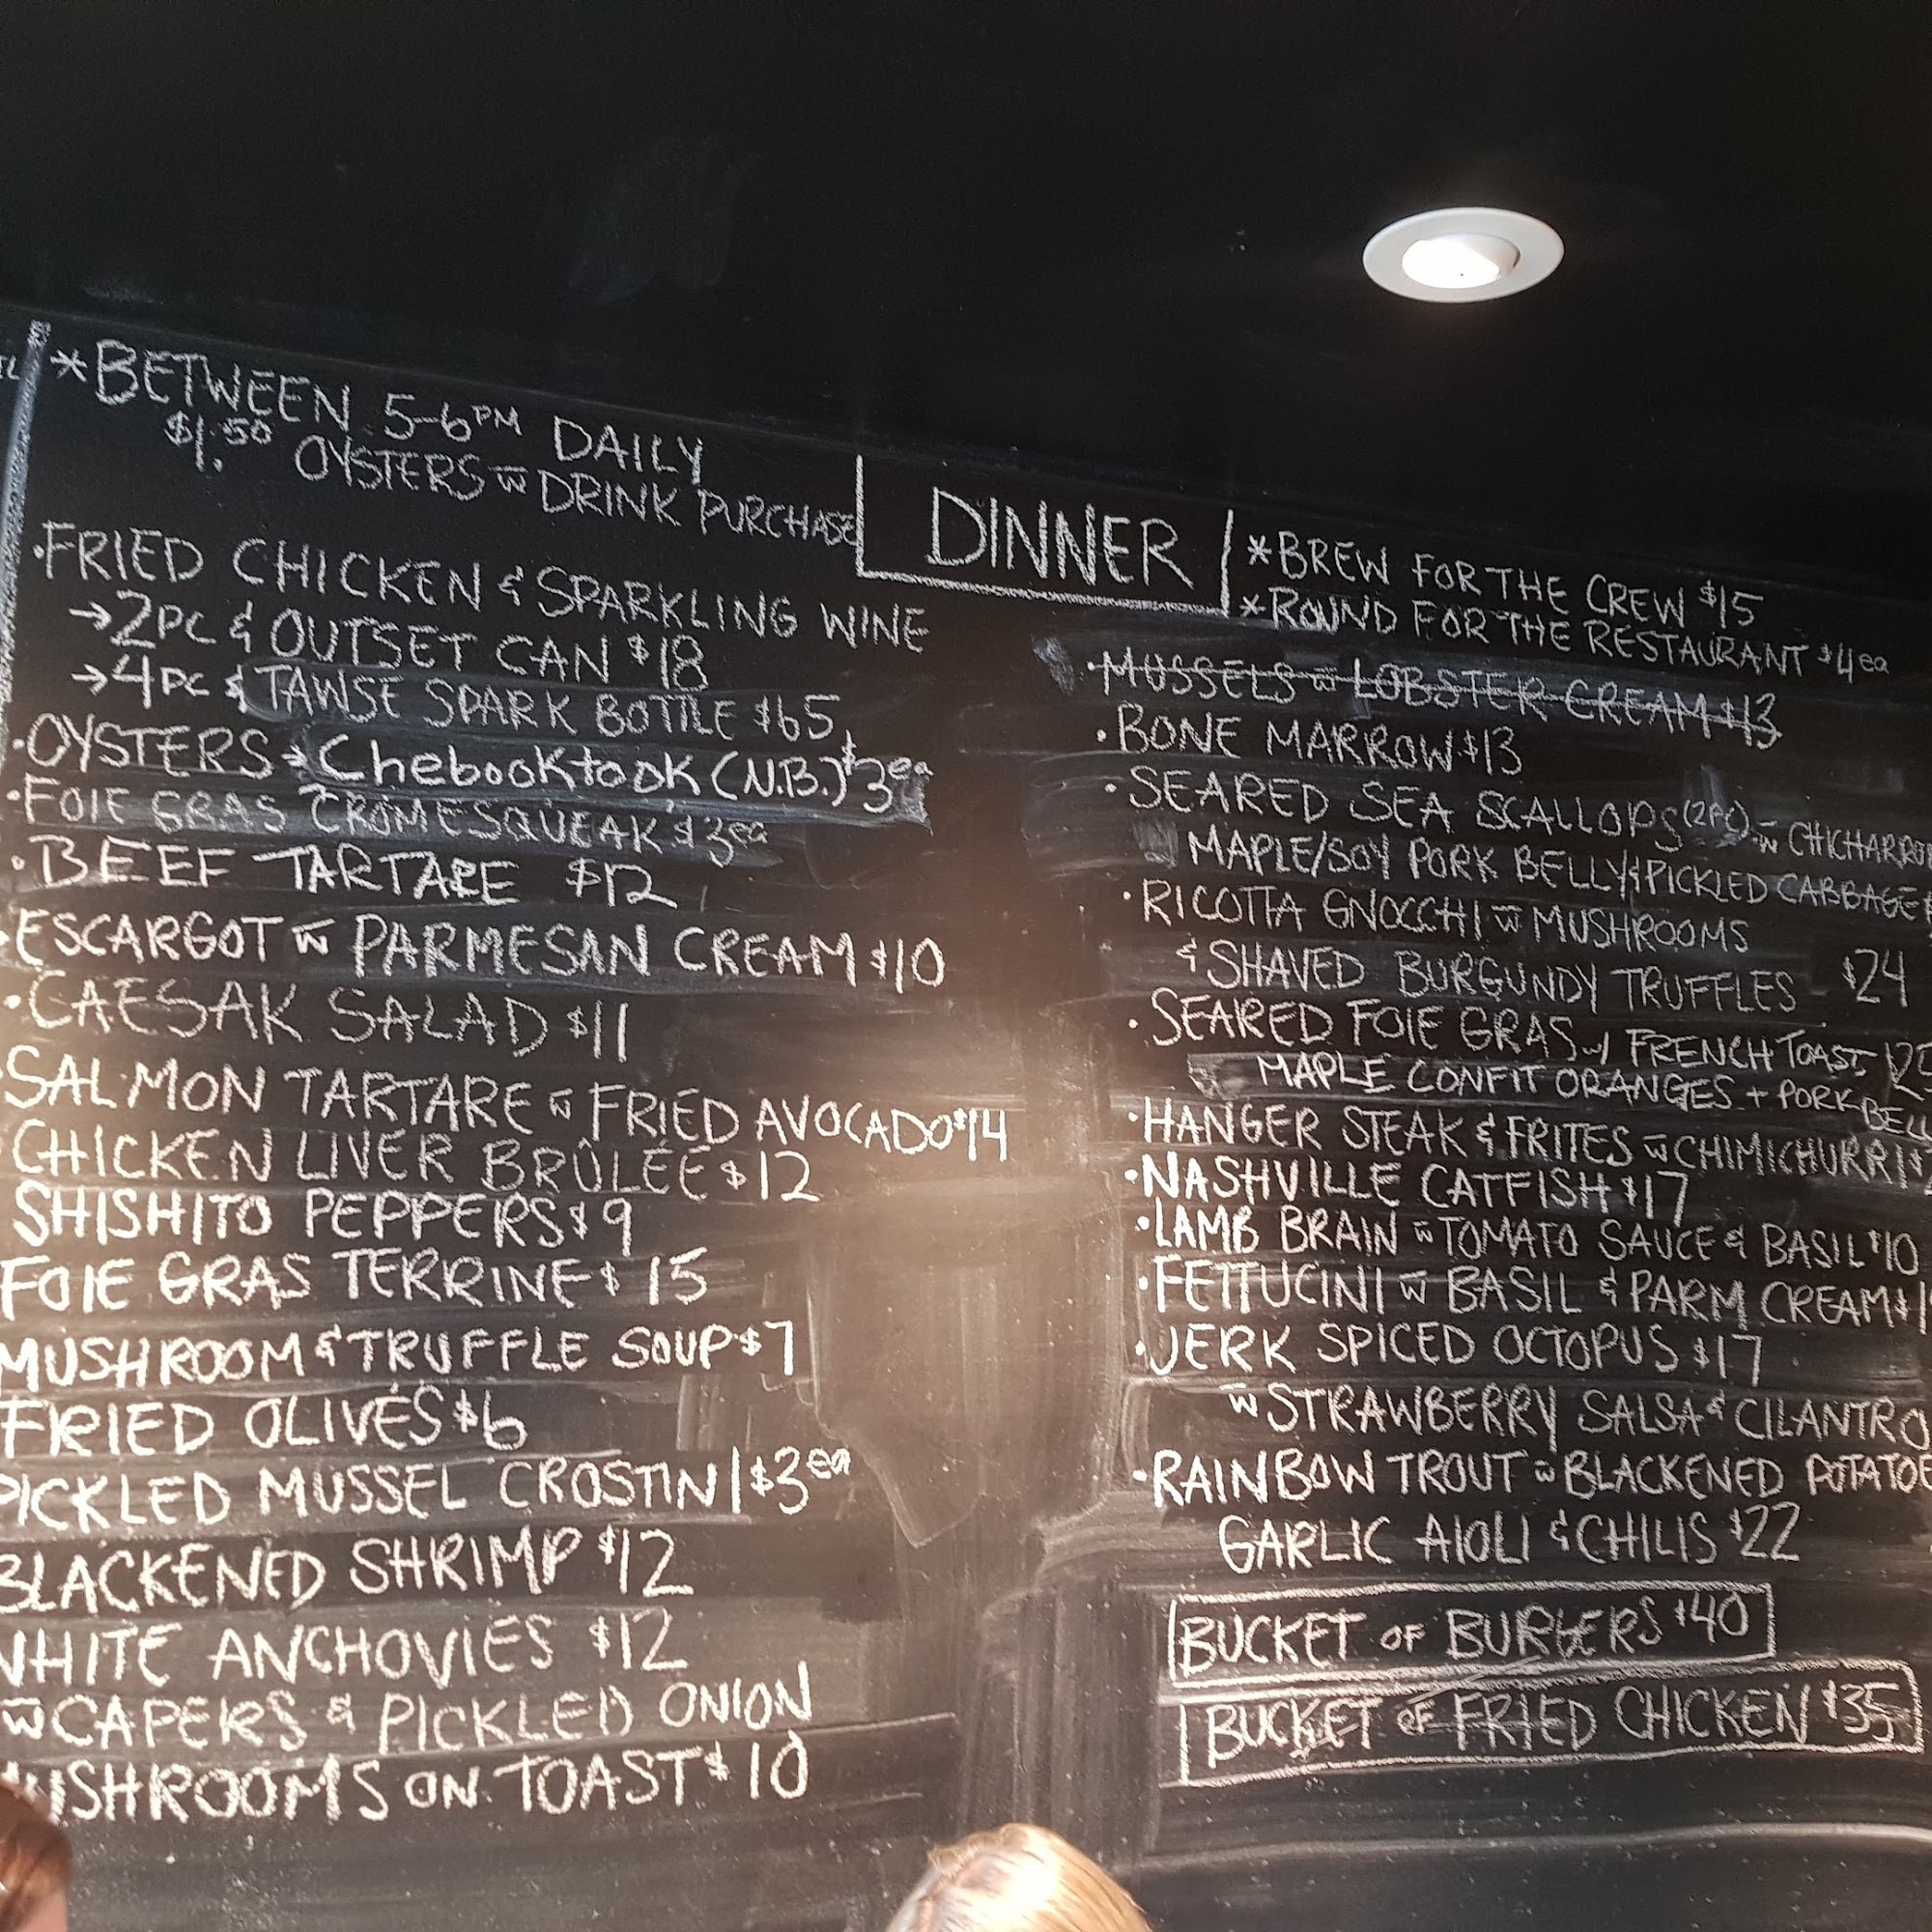 *BETWEEN 5-6PM DAILY
$1.50 OYSTERS w̄ DRINK PURCHASE
•FRIED CHICKEN & SPARKLING WINE
→2PC & OUTSET CAN $18
→4PC & TAWSE SPARK BOTTLE $65
•OYSTERS → Chebooktook (N.B.) $3ea
•FOIE GRAS CROMESQUEAK $3ea
•BEEF TARTARE $12
•ESCARGOT w̄ PARMESAN CREAM $10
•CAESAR SALAD $11
•SALMON TARTARE w̄ FRIED AVOCADO $14
CHICKEN LIVER BRÛLÉE $12
SHISHITO PEPPERS $9
FOIE GRAS TERRINE $15
MUSHROOM & TRUFFLE SOUP $7
FRIED OLIVES $6
PICKLED MUSSEL CROSTINI $3ea
BLACKENED SHRIMP $12
WHITE ANCHOVIES $12
w̄ CAPERS & PICKLED ONION
MUSHROOMS ON TOAST $10
DINNER
*BREW FOR THE CREW $15
*ROUND FOR THE RESTAURANT $4ea
•MUSSELS w̄ LOBSTER CREAM $13
•BONE MARROW $13
•SEARED SEA SCALLOPS (2PC) w̄ CHICHARRO
MAPLE/SOY PORK BELLY & PICKLED CABBAGE
•RICOTTA GNOCCHI w̄ MUSHROOMS
& SHAVED BURGUNDY TRUFFLES $24
•SEARED FOIE GRAS w/ FRENCH TOAST
MAPLE CONFIT ORANGES + PORK BELL
•HANGER STEAK & FRITES w̄ CHIMICHURRI $
•NASHVILLE CATFISH $17
•LAMB BRAIN w̄ TOMATO SAUCE & BASIL $10
•FETTUCINI w̄ BASIL & PARM CREAM $1
•JERK SPICED OCTOPUS $17
w̄ STRAWBERRY SALSA & CILANTRO
•RAINBOW TROUT w̄ BLACKENED POTATOE
GARLIC AIOLI & CHILIS $22
BUCKET OF BURGERS $40
BUCKET OF FRIED CHICKEN $35